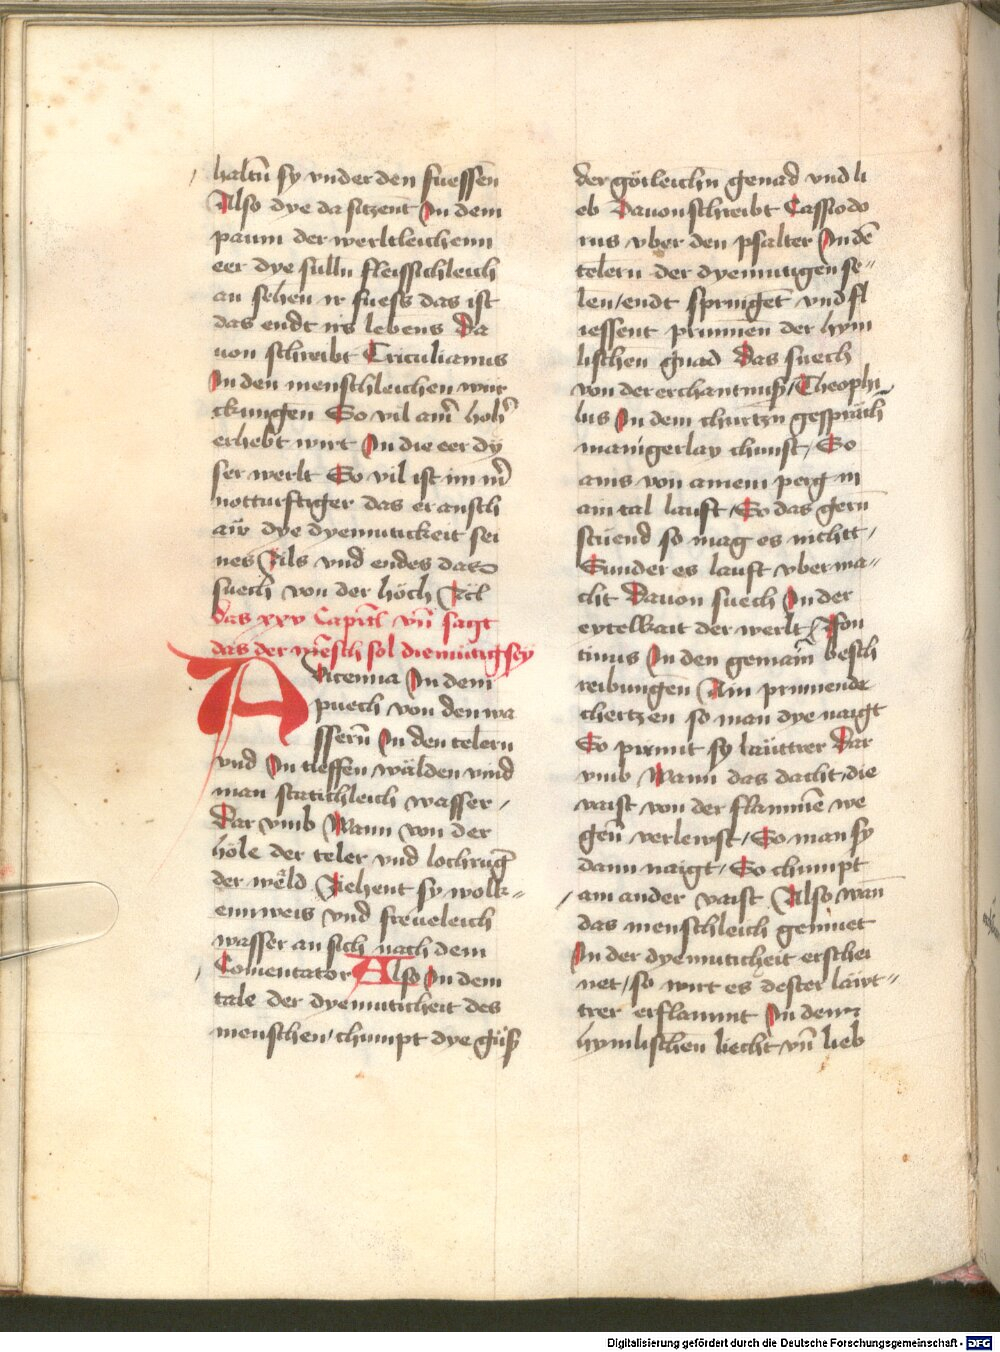 haltn̄ sy vnder den fuessen̄
Also dye da sitzent In dem
paum der werltleichenn
eer dye sulln fleissichleich
an sehen ir fuess das ist
das endt irs lebens Da
uon schreibt Triculianus
In den menschleichen wur
ckungen̄ So vil am̄ hoh̄
erhebt wirt In die eer dy
ser werlt So vil ist im m̄
notturftiger das er ansch
aw̄ dye dyemutickeit sei
nes Fils vnd endes das
suech von der höch
das xxv Capitl vn̄ sagt
das der mēsch sol diemütig sey
Avicenna In dem
puech von den wa
ssern̄ In den telern
vnd In tieffen wälden vind
man stätichleich wasser /
Dar vmb Wann von der
höle der teler vnd lochruḡ
der wëld Ziehent sy wolk=
ennweis vnd freueleich
wasser an sich nach dem
Comentator Also In dem
tale der dyemuticheit des
menschen / chumpt dye güß
der götleichn̄ genad vnd li
eb Dauon schreibt Cassiodo
rus vber den psalter In dē
telern der dyemutigen se=
len / endt springet vnd fl
iessent prunnen der hym
lischen gnad Das suech
von der erchantnuß / Theophi
lus In dem churtzn gespräch
manigerlay chunst / So
ains von ainem perg in
ain tal lauft / So das gern̄
stuend so mag es nichtt /
Sunder es lauft vber ma=
cht Dauon suech In der
eytelkait der werlt / Fron
tinus In den gemain̄ besch
reibungen̄ Ain prinnende
chertzen so man dye naigt
So prinnt sy läuttrer Dar
vmb Wann das dacht / die
vaist von der flammē we
gen̄ verlewst / So man sy
dann naigt / So chumpt
am ander vaist Also wan̄
das menschleich gemuet
In der dyemuticheit erschei
net / so wirt es dester läwt=
trer erflammt In dem
hymlischen̄ liecht vn̄ lieb
Digitalisierung gefördert durch die Deutsche Forschungsgemeinschaft - DFG